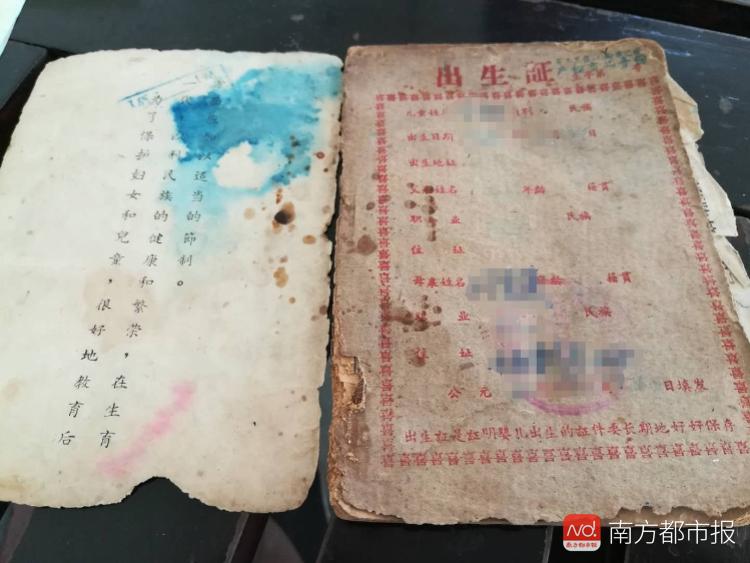 为了保护妇女和兒童，很好地教育后
利民族的健康和繁荣，在生育
以适当的節制。
出生証
儿童姓 民族
出生日期 日
出生地址
姓名 年龄 籍貫
职业 民族
住址
母亲姓名 籍貫
业 民族
址
公元 日填发
出生証是証明嬰儿出生的証件要长期地好好保存
N
南方都市报
南方都市报